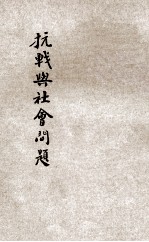 抗戰與社會問題